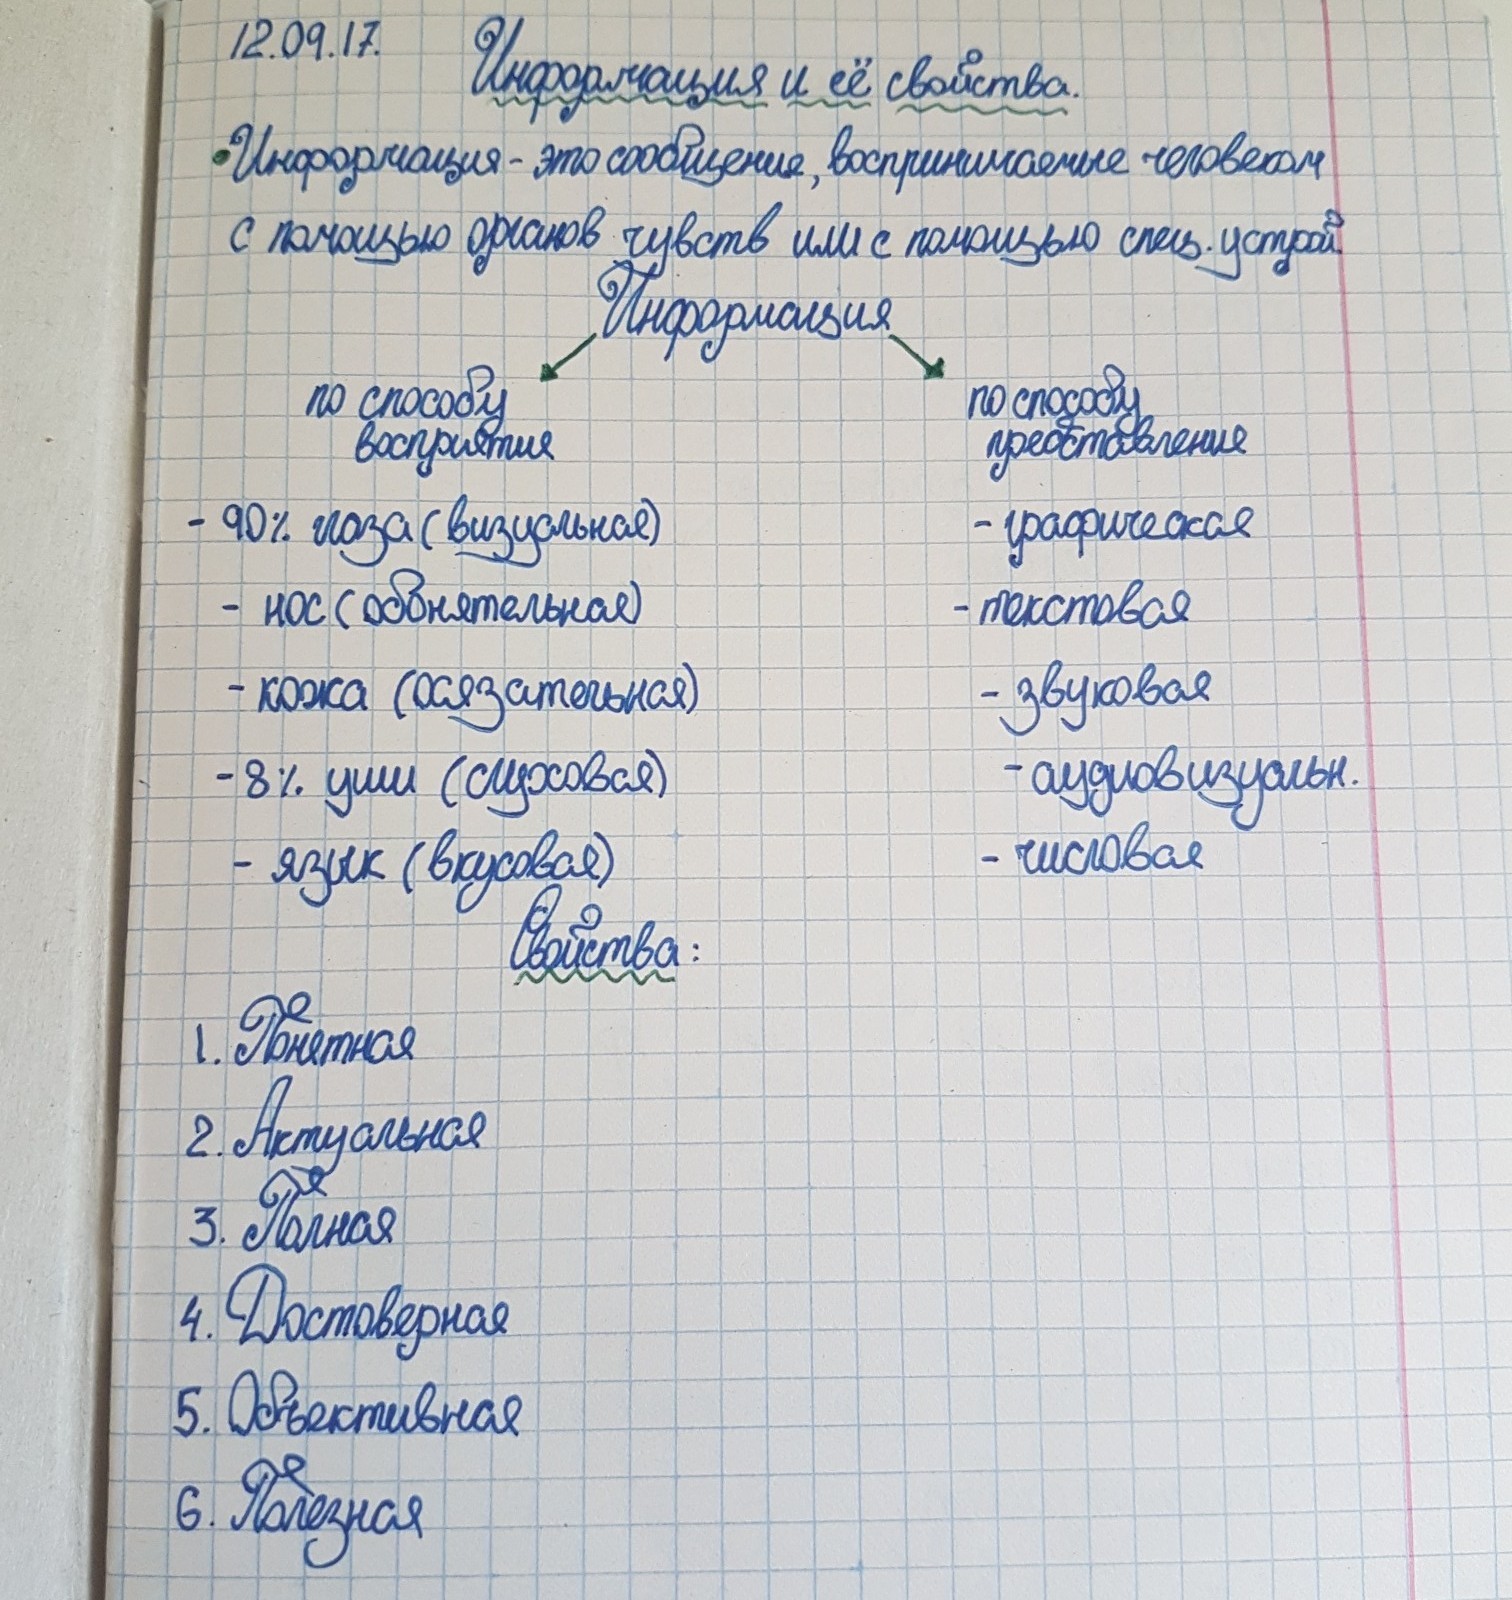 12.09.17.
Информация и её свойства.
Информация - это сообщение, воспринимаемые человеком
с помощью органов чувств или с помощью спец. устрой.
Информация
по способу
восприятия
по способу
представление
- 90% глаза (визуальная)
- графическая
- нос (обонятельная)
- текстовая
- кожа (осязательная)
- звуковая
- 8% уши (слуховая)
- аудиовизуальн.
- язык (вкусовая)
- числовая
Свойства:
1. Понятная
2. Актуальная
3. Полная
4. Достоверная
5. Объективная
6. Полезная